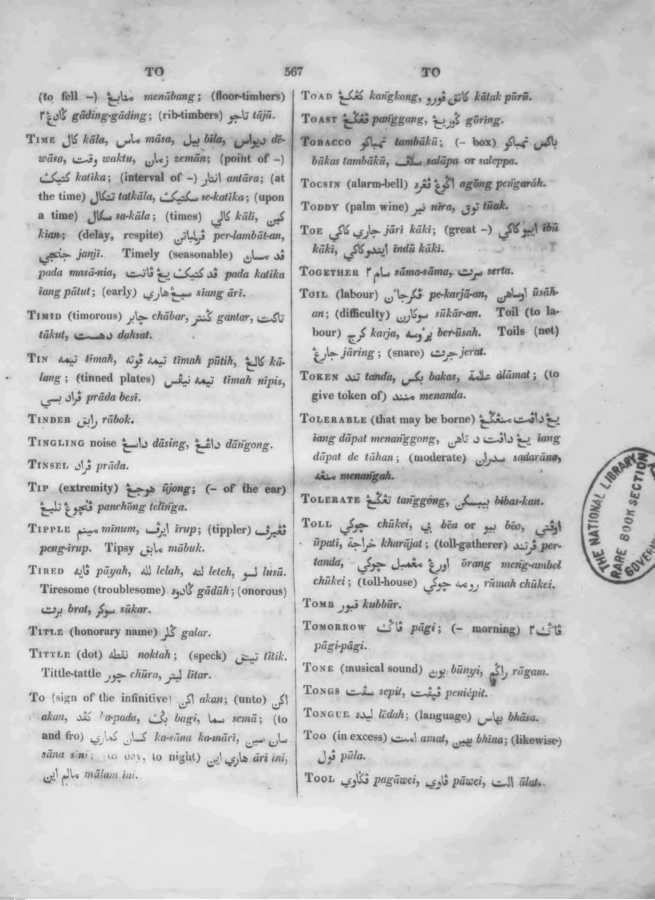 TO 567 TO
(to fell –) منابڠ menābang; (floor-timbers)
ڬادڠ٢ gāding-gāding; (rib-timbers) تاجو tājū.
TIME كال kāla, ماس māsa, بيل bīla, ديواس dē-
wāsa, وقت waktu, زمان zemān; (point of –)
كتيك katika; (interval of –) انتار antāra; (at
the time) تتكال tatkāla, سكتيك se-katika; (upon
a time) سكال sa-kāla; (times) كالي kāli, كين
kian; (delay, respite) ڤرلمباتن per-lambāt-an,
janji. Timely (seasonable) قد مسان
pada masā-nia, قد كتيك يڠ ڤاتت pada katika
iang pātut; (early) سيڠ هاري siang āri.
TIMID (timorous) چابر chābar, ڬنتر gantar, تاكت
tākut, دهشت dahsat.
TIN تيمه tīmah, تيمه ڤوته tīmah pūtih, كالڠ kā-
lang; (tinned plates) تيمه نيڤس tīmah nipis,
ڤراد بسي prāda besi.
TINDER رابق rābok.
TINGLING noise داسڠ dāsing, داڠڠ dāngong.
TINSEL ڤراد prāda.
TIP (extremity) هوجڠ ūjong; (– of the ear)
ڤنچوڠ تليڠ panchōng telīnga.
TIPPLE مينم mīnum, ايرف īrup; (tippler) ڤڠيرف
peng-īrup. Tipsy مابق mābuk.
TIRED ڤايه pāyah, لله lelah, لته leteh, لسو lusū.
Tiresome (troublesome) ڬادوه gādūh; (onorous)
برت brat, سوكر sūkar.
TITLE (honorary name) ڬلر galar.
TITTLE (dot) نقطه noktah; (speck) تيتق tītik.
Tittle-tattle چور chūra, ليتر lītar.
TO (sign of the infinitive) اكن akan; (unto) اكن
akan, كڤد ka-pada, بڬي bagi, سما semā; (to
and fro) كسان كماري ka-sāna ka-māri, سان سين
sāna sini; (to day, to night) هاري اين āri ini,
مالم اين mālam ini.
TOAD كڠكڠ kangkong, كاتق ڤورو kātak pūrū.
TOAST ڤڠڬڠ panggang, ڬوريڠ gōring.
TOBACCO تمباكو tambākū; (– box) باكس تمباكو
bākas tambākū, سلاف salāpa or saleppa.
TOCSIN (alarm-bell) اڬوڠ ڤڠره agōng pengarāh.
TODDY (palm wine) نير nīra, توق tūak.
TOE جاري كاكي jāri kāki; (great –) ايبو كاكي ību
kāki, ايندو كاكي īndū kāki.
TOGETHER سام٢ sāma-sāma, سرت serta.
TOIL (labour) ڤكرجائن pe-karjā-an, اوساهن ūsāh-
an; (difficulty) سوكارن sūkār-an. Toil (to la-
bour) كرج karja, براوسه ber-ūsah. Toils (net)
جارڠ jāring; (snare) جرت jerat.
TOKEN تند tanda, بكس bakas, علامة ālāmat; (to
give token of) منند menanda.
TOLERABLE (that may be borne) يڠ داڤت منڠڬڠ
iang dāpat menanggong, يڠ داڤت د تاهن iang
dāpat de tāhan; (moderate) سدران sadarāna,
menangah.
TOLERATE تڠڬڠ tanggōng, بيبسكن bibas-kan.
TOLL چوكي chūkei, بي bēa or بيو bēo, اوڤتي
ūpatī, خراجة kharājat; (toll-gatherer) ڤرتند per-
tanda, اورڠ مڠمبل چوكي ōrang meng-ambel
chūkei; (toll-house) رومه چوكي rūmah chūkei.
TOMB قبور kubbūr.
TOMORROW ڤاڬي pāgi; (– morning) ڤاڬي٢
pāgi-pāgi.
TONE (musical sound) بوني būnyi, راڬم rāgam.
TONGS سڤت sepit, ڤڽڤت peniépit.
TONGUE ليده līdah; (language) بهاس bhāsa.
TOO (in excess) امت amat, بهين bhīna; (likewise)
ڤول pūla.
TOOL ڤڬاوي pagāwei, ڤاوي pāwei, الت ālat.
THE NATIONAL LIBRARY
RARE BOOK SECTION